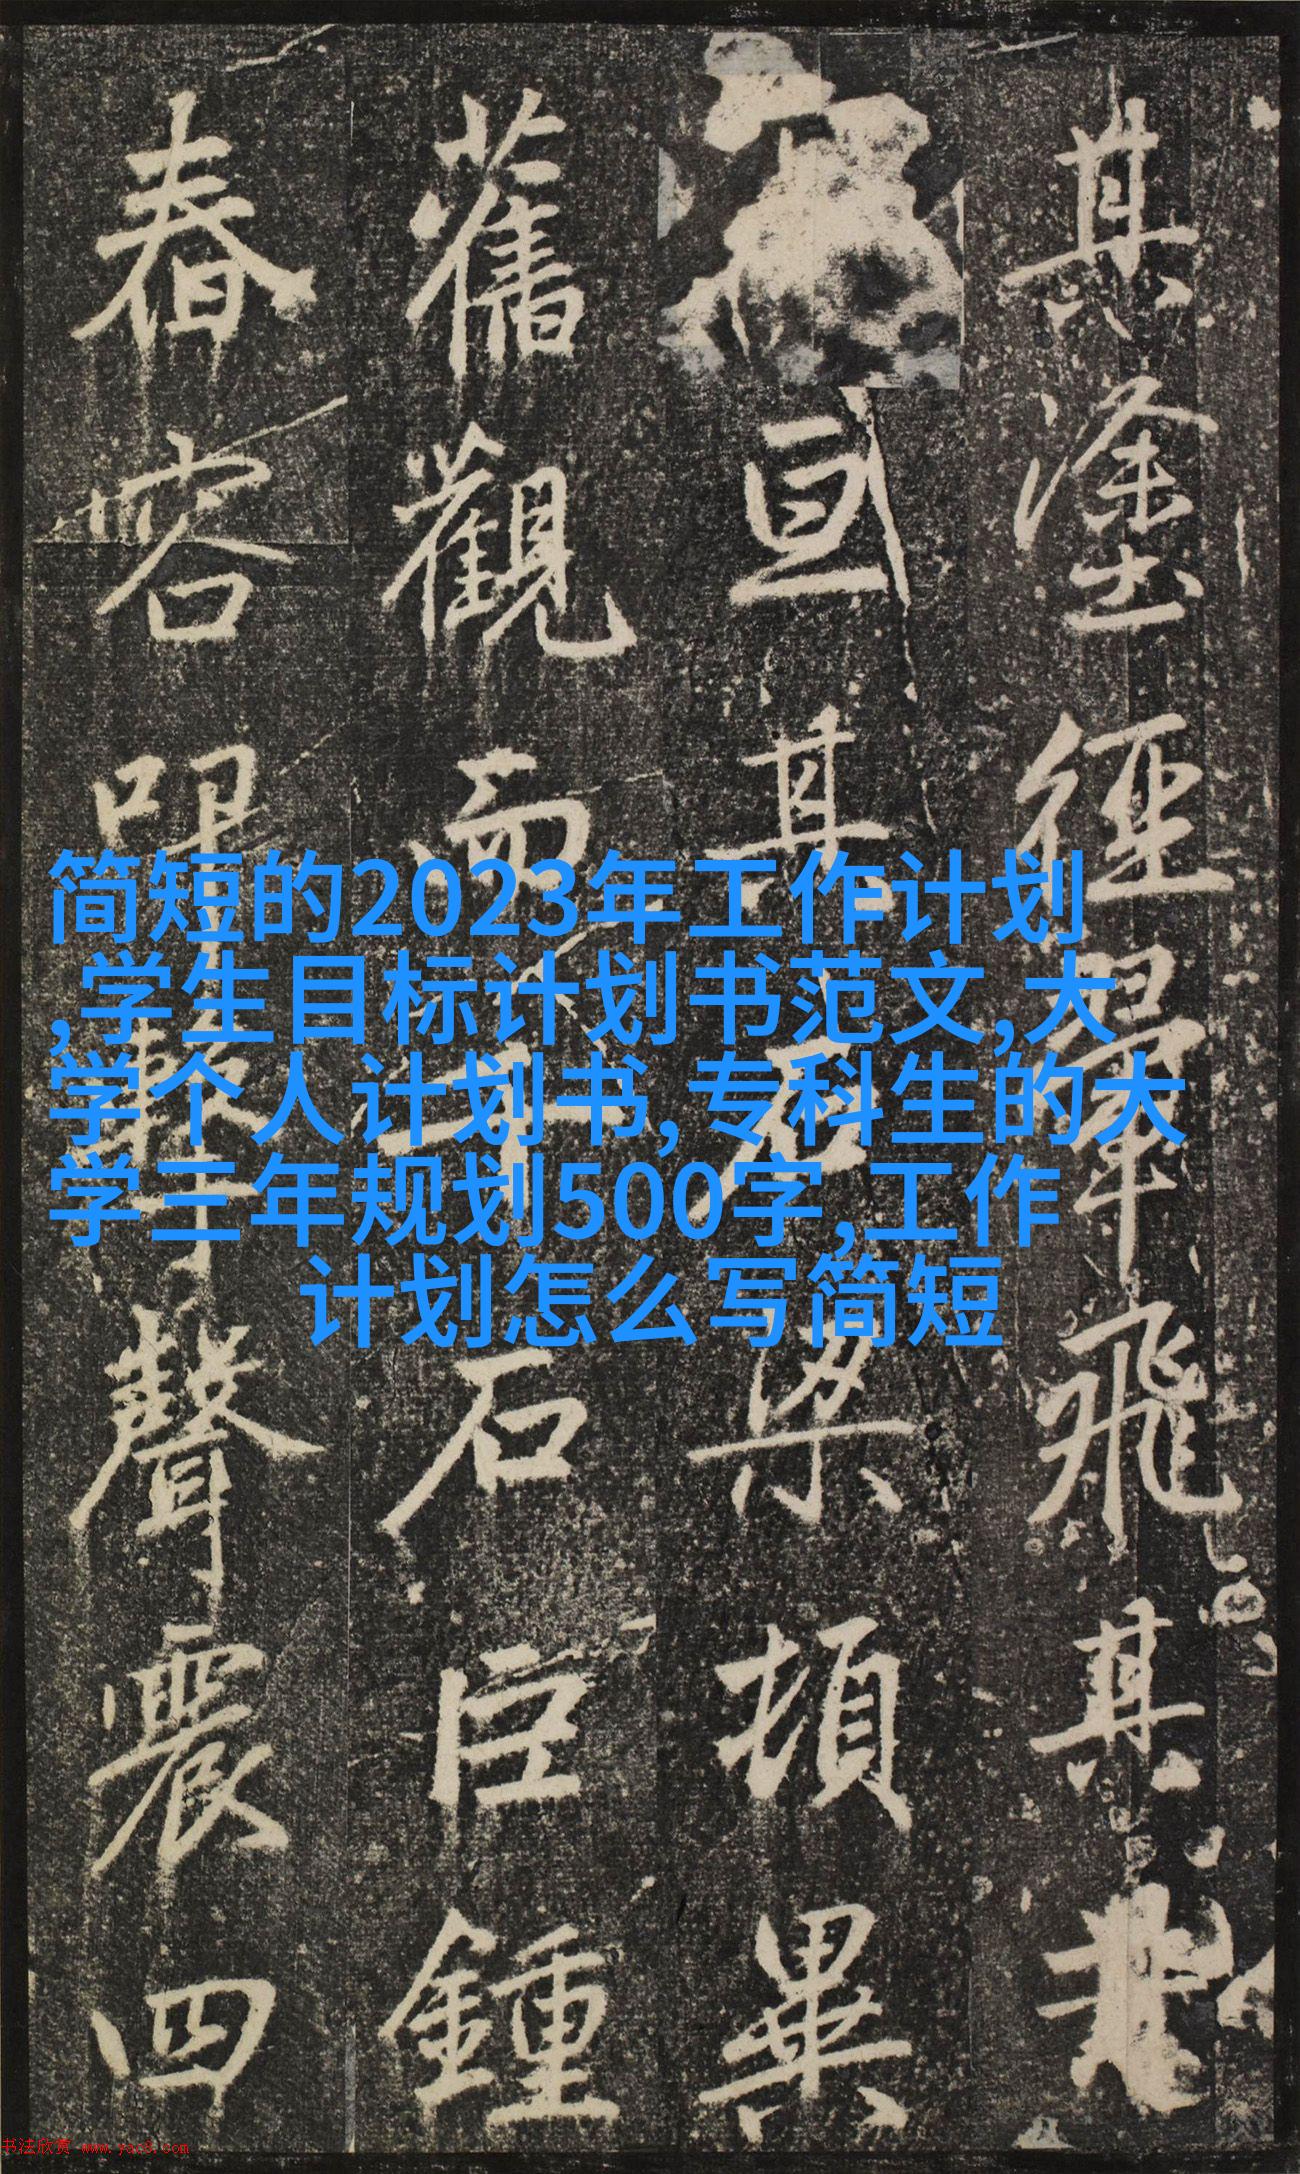 其塗經翬飛其
亘其梁頓異
舊觀而石巨鍾
舂容聲震四
简短的2023年工作计划
,学生目标计划书范文,大
学个人计划书,专科生的大
学三年规划500字,工作
计划怎么写简短
书法欣赏 www.yac8.com